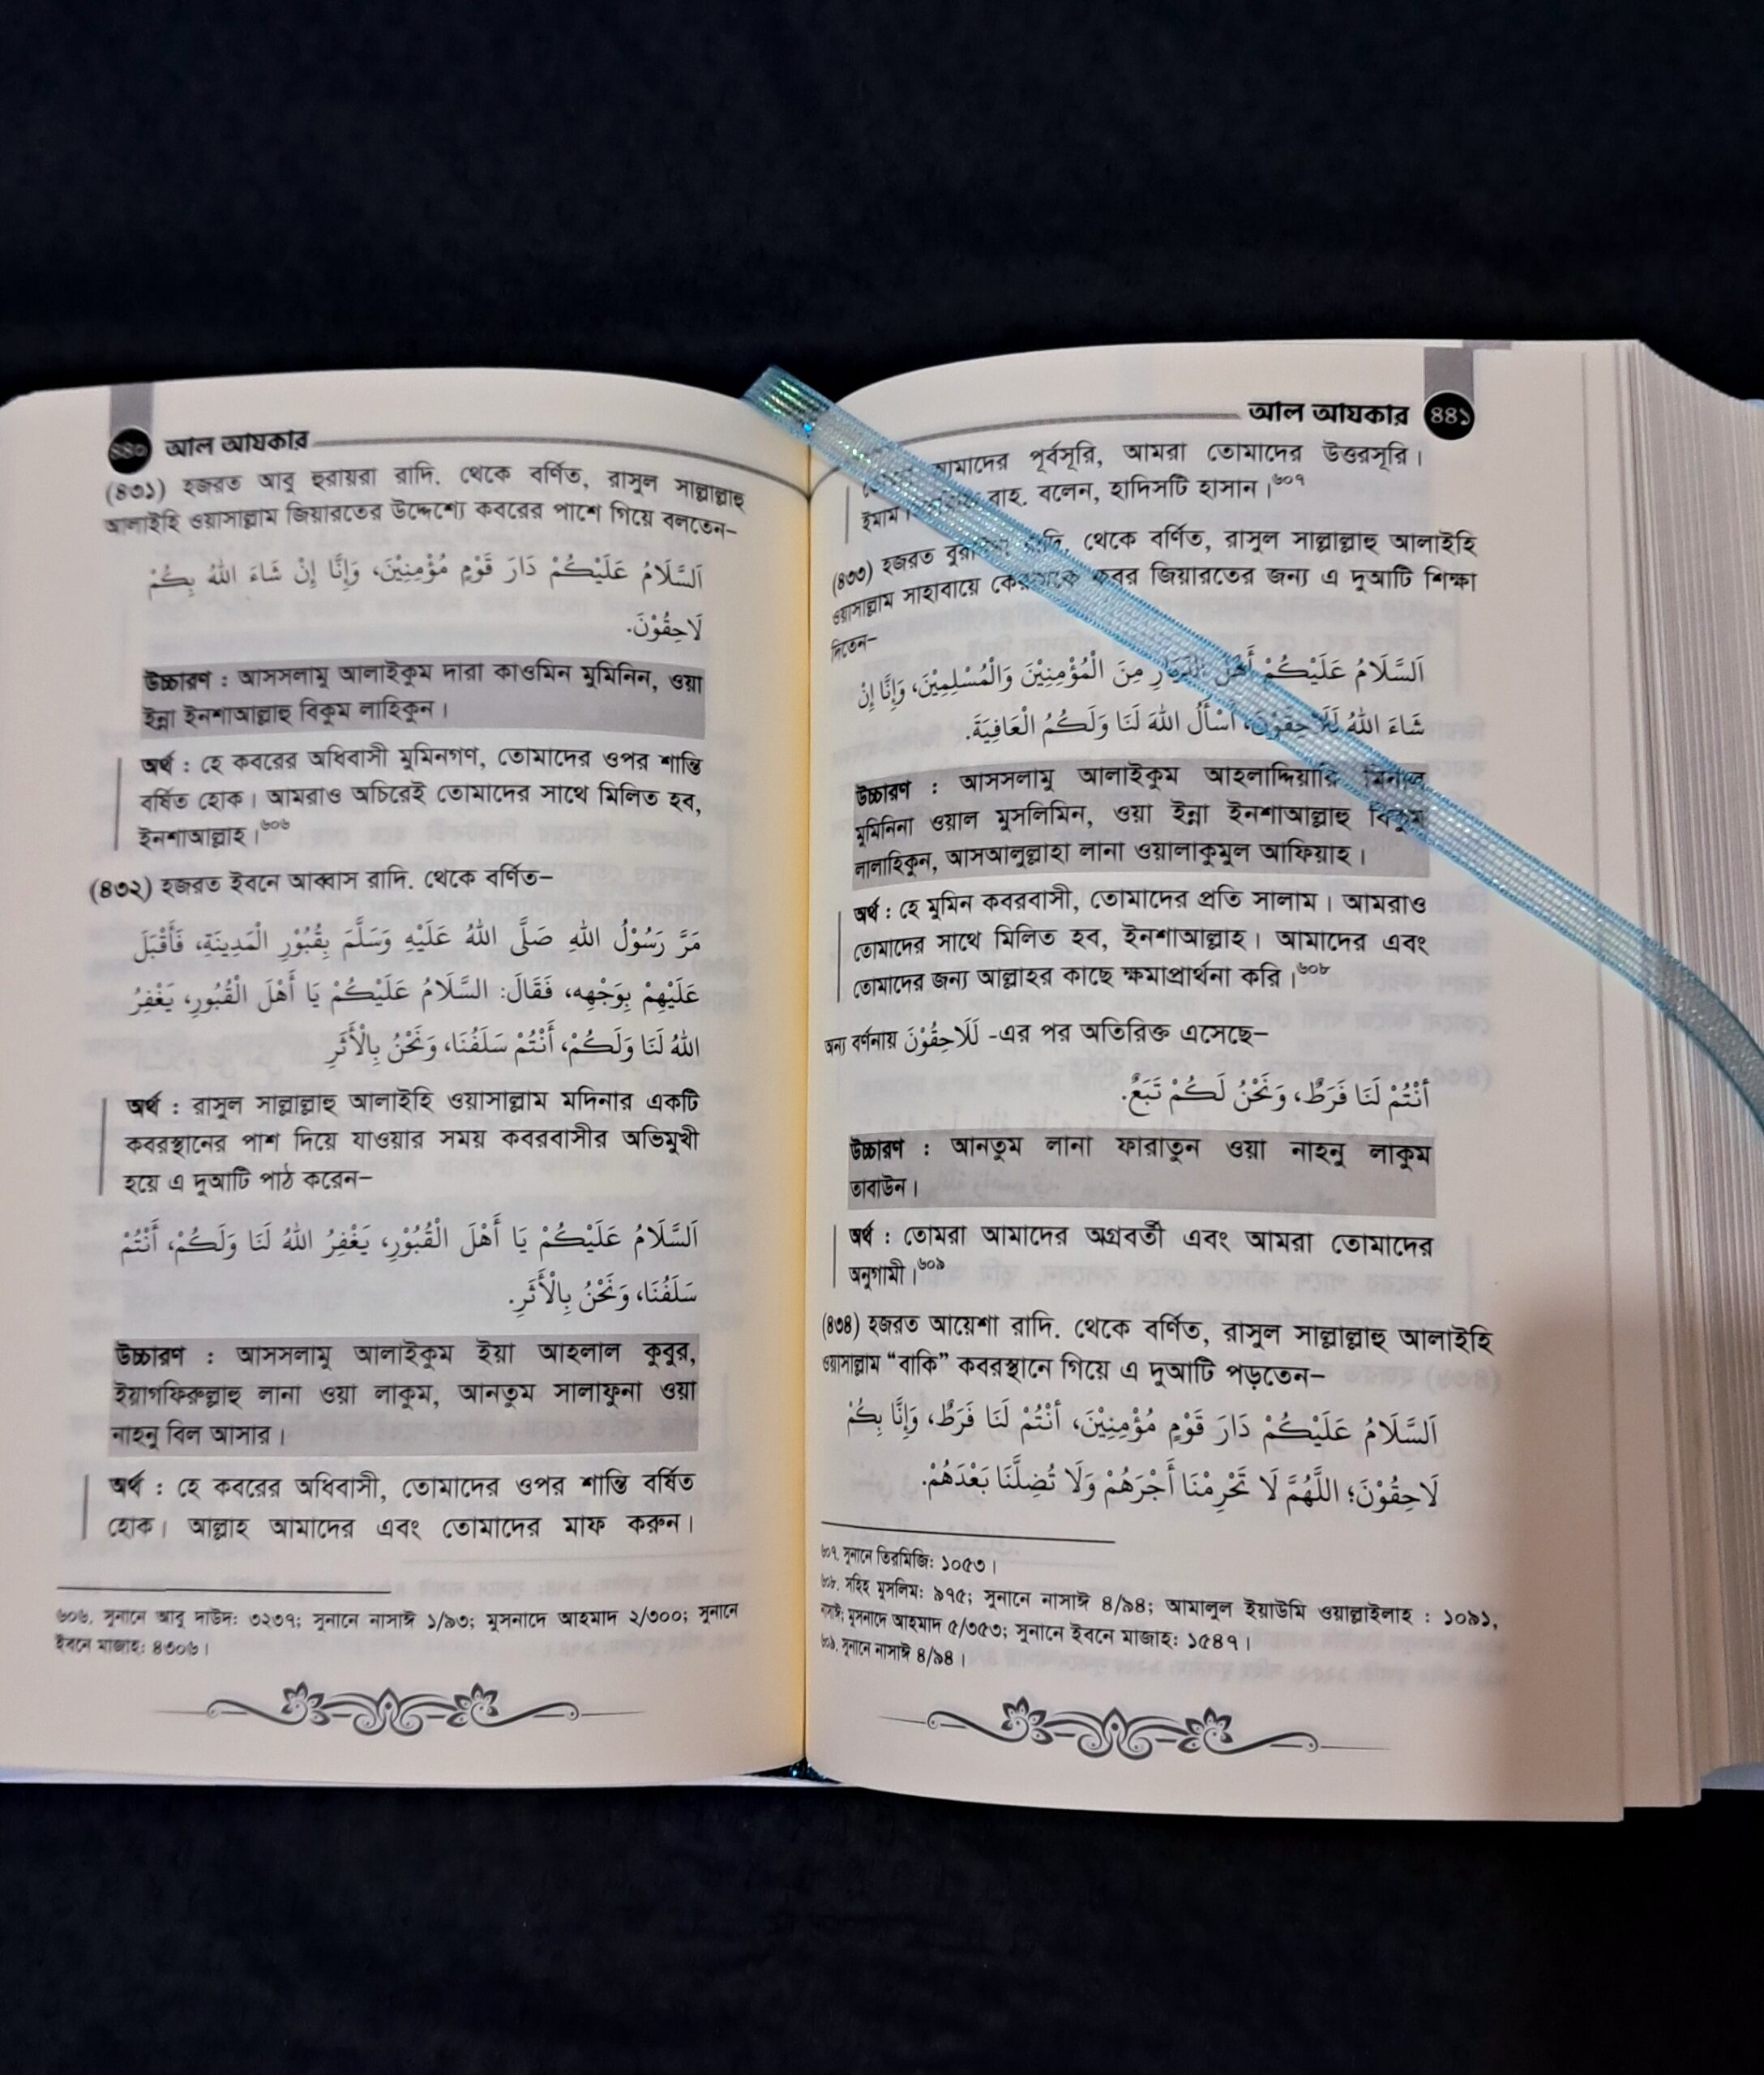 ৪৪০ আল আযকার
(৪৩১) হজরত আবু হুরায়রা রাদি. থেকে বর্ণিত, রাসুল সাল্লাল্লাহু
আলাইহি ওয়াসাল্লাম জিয়ারতের উদ্দেশ্যে কবরের পাশে গিয়ে বলতেন–
اَلسَّلَامُ عَلَيْكُمْ دَارَ قَوْمٍ مُؤْمِنِيْنَ، وَإِنَّا إِنْ شَاءَ اللهُ بِكُمْ
لَاحِقُوْنَ.
উচ্চারণ : আসসলামু আলাইকুম দারা কাওমিন মুমিনিন, ওয়া
ইন্না ইনশাআল্লাহু বিকুম লাহিকুন।
অর্থ : হে কবরের অধিবাসী মুমিনগণ, তোমাদের ওপর শান্তি
বর্ষিত হোক। আমরাও অচিরেই তোমাদের সাথে মিলিত হব,
ইনশাআল্লাহ।৬০৬
(৪৩২) হজরত ইবনে আব্বাস রাদি. থেকে বর্ণিত–
مَرَّ رَسُوْلُ اللهِ صَلَّى اللهُ عَلَيْهِ وَسَلَّمَ بِقُبُوْرِ الْمَدِينَةِ، فَأَقْبَلَ
عَلَيْهِمْ بِوَجْهِهِ، فَقَالَ: السَّلَامُ عَلَيْكُمْ يَا أَهْلَ الْقُبُورِ، يَغْفِرُ
اللهُ لَنَا وَلَكُمْ، أَنْتُمْ سَلَفُنَا، وَنَحْنُ بِالْأَثَرِ
অর্থ : রাসুল সাল্লাল্লাহু আলাইহি ওয়াসাল্লাম মদিনার একটি
কবরস্থানের পাশ দিয়ে যাওয়ার সময় কবরবাসীর অভিমুখী
হয়ে এ দুআটি পাঠ করেন–
اَلسَّلَامُ عَلَيْكُمْ يَا أَهْلَ الْقُبُوْرِ، يَغْفِرُ اللهُ لَنَا وَلَكُمْ، أَنْتُمْ
سَلَفُنَا، وَنَحْنُ بِالْأَثَرِ.
উচ্চারণ : আসসলামু আলাইকুম ইয়া আহলাল কুবুর,
ইয়াগফিরুল্লাহু লানা ওয়া লাকুম, আনতুম সালাফুনা ওয়া
নাহনু বিল আসার।
অর্থ : হে কবরের অধিবাসী, তোমাদের ওপর শান্তি বর্ষিত
হোক। আল্লাহ আমাদের এবং তোমাদের মাফ করুন।
৬০৬. সুনানে আবু দাউদ: ৩২৩৭; সুনানে নাসাঈ ১/৯৩; মুসনাদে আহমাদ ২/৩০০; সুনানে
ইবনে মাজাহ: ৪৩০৬।
আল আযকার ৪৪১
আমাদের পূর্বসূরি, আমরা তোমাদের উত্তরসূরি।
ইমাম রাহ. বলেন, হাদিসটি হাসান।৬০৭
(৪৩৩) হজরত রাদি. থেকে বর্ণিত, রাসুল সাল্লাল্লাহু আলাইহি
ওয়াসাল্লাম সাহাবায়ে কেরামকে কবর জিয়ারতের জন্য এ দুআটি শিক্ষা
দিতেন–
اَلسَّلَامُ عَلَيْكُمْ أَهْلَ الدِّيَارِ مِنَ الْمُؤْمِنِيْنَ وَالْمُسْلِمِيْنَ، وَإِنَّا إِنْ
شَاءَ اللهُ لَلَاحِقُوْنَ، أَسْأَلُ اللهَ لَنَا وَلَكُمُ الْعَافِيَةَ.
উচ্চারণ : আসসলামু আলাইকুম আহলাদ্দিয়ারি মিনাল
মুমিনিনা ওয়াল মুসলিমিন, ওয়া ইন্না ইনশাআল্লাহু বিকুম
লালাহিকুন, আসআলুল্লাহা লানা ওয়ালাকুমুল আফিয়াহ।
অর্থ : হে মুমিন কবরবাসী, তোমাদের প্রতি সালাম। আমরাও
তোমাদের সাথে মিলিত হব, ইনশাআল্লাহ। আমাদের এবং
তোমাদের জন্য আল্লাহর কাছে ক্ষমাপ্রার্থনা করি।৬০৮
অন্য বর্ণনায় لَلَاحِقُوْنَ -এর পর অতিরিক্ত এসেছে–
أَنْتُمْ لَنَا فَرَطٌ، وَنَحْنُ لَكُمْ تَبَعٌ.
উচ্চারণ : আনতুম লানা ফারাতুন ওয়া নাহনু লাকুম
তাবাউন।
অর্থ : তোমরা আমাদের অগ্রবর্তী এবং আমরা তোমাদের
অনুগামী।৬০৯
(৪৩৪) হজরত আয়েশা রাদি. থেকে বর্ণিত, রাসুল সাল্লাল্লাহু আলাইহি
ওয়াসাল্লাম “বাকি” কবরস্থানে গিয়ে এ দুআটি পড়তেন–
اَلسَّلَامُ عَلَيْكُمْ دَارَ قَوْمٍ مُؤْمِنِيْنَ، أَنْتُمْ لَنَا فَرَطٌ، وَإِنَّا بِكُمْ
لَاحِقُوْنَ؛ اللَّهُمَّ لَا تَحْرِمْنَا أَجْرَهُمْ وَلَا تُضِلَّنَا بَعْدَهُمْ.
৬০৭. সুনানে তিরমিজি: ১০৫৩।
৬০৮. সহিহ মুসলিম: ৯৭৫; সুনানে নাসাঈ ৪/৯৪; আমালুল ইয়াউমি ওয়াল্লাইলাহ : ১০৯১,
নাসাঈ; মুসনাদে আহমাদ ৫/৩৫৩; সুনানে ইবনে মাজাহ: ১৫৪৭।
৬০৯. সুনানে নাসাঈ ৪/৯৪।